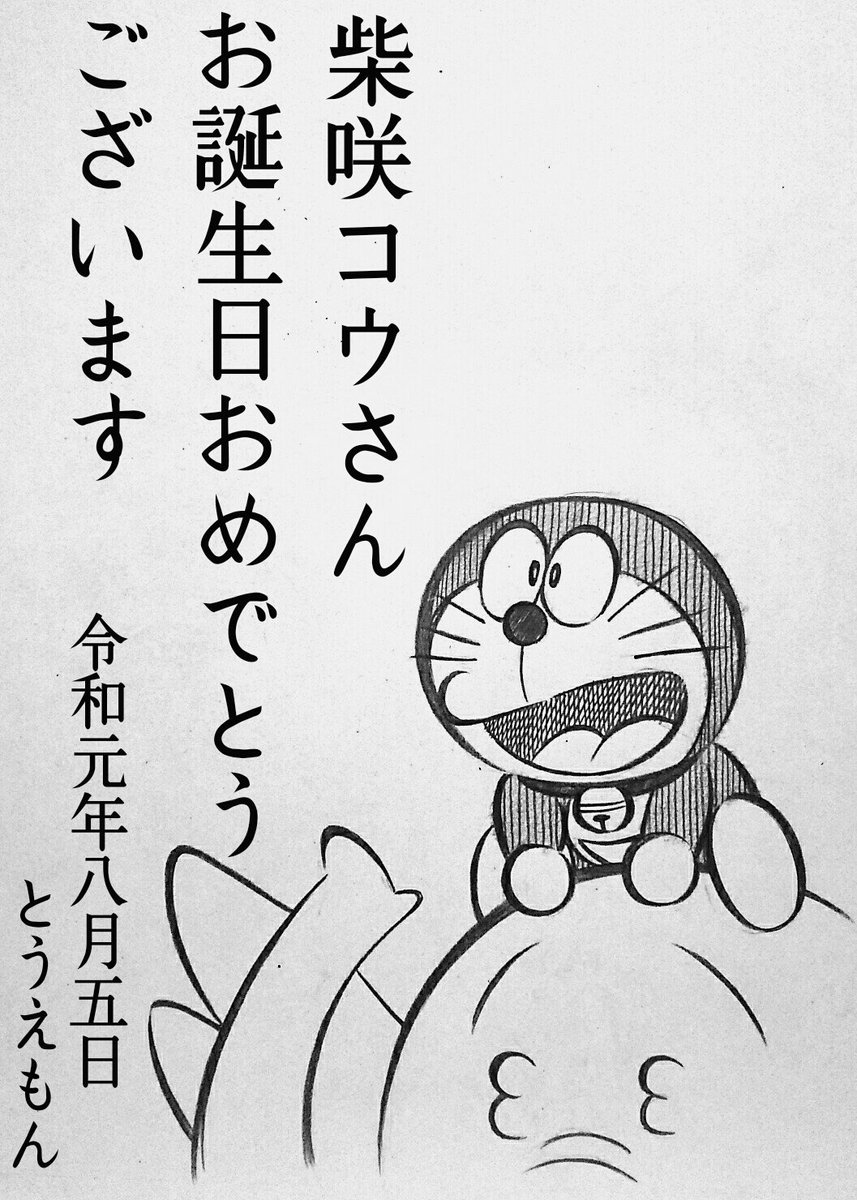 柴咲コウさん
お誕生日おめでとう
ございます
令和元年八月五日
とうえもん